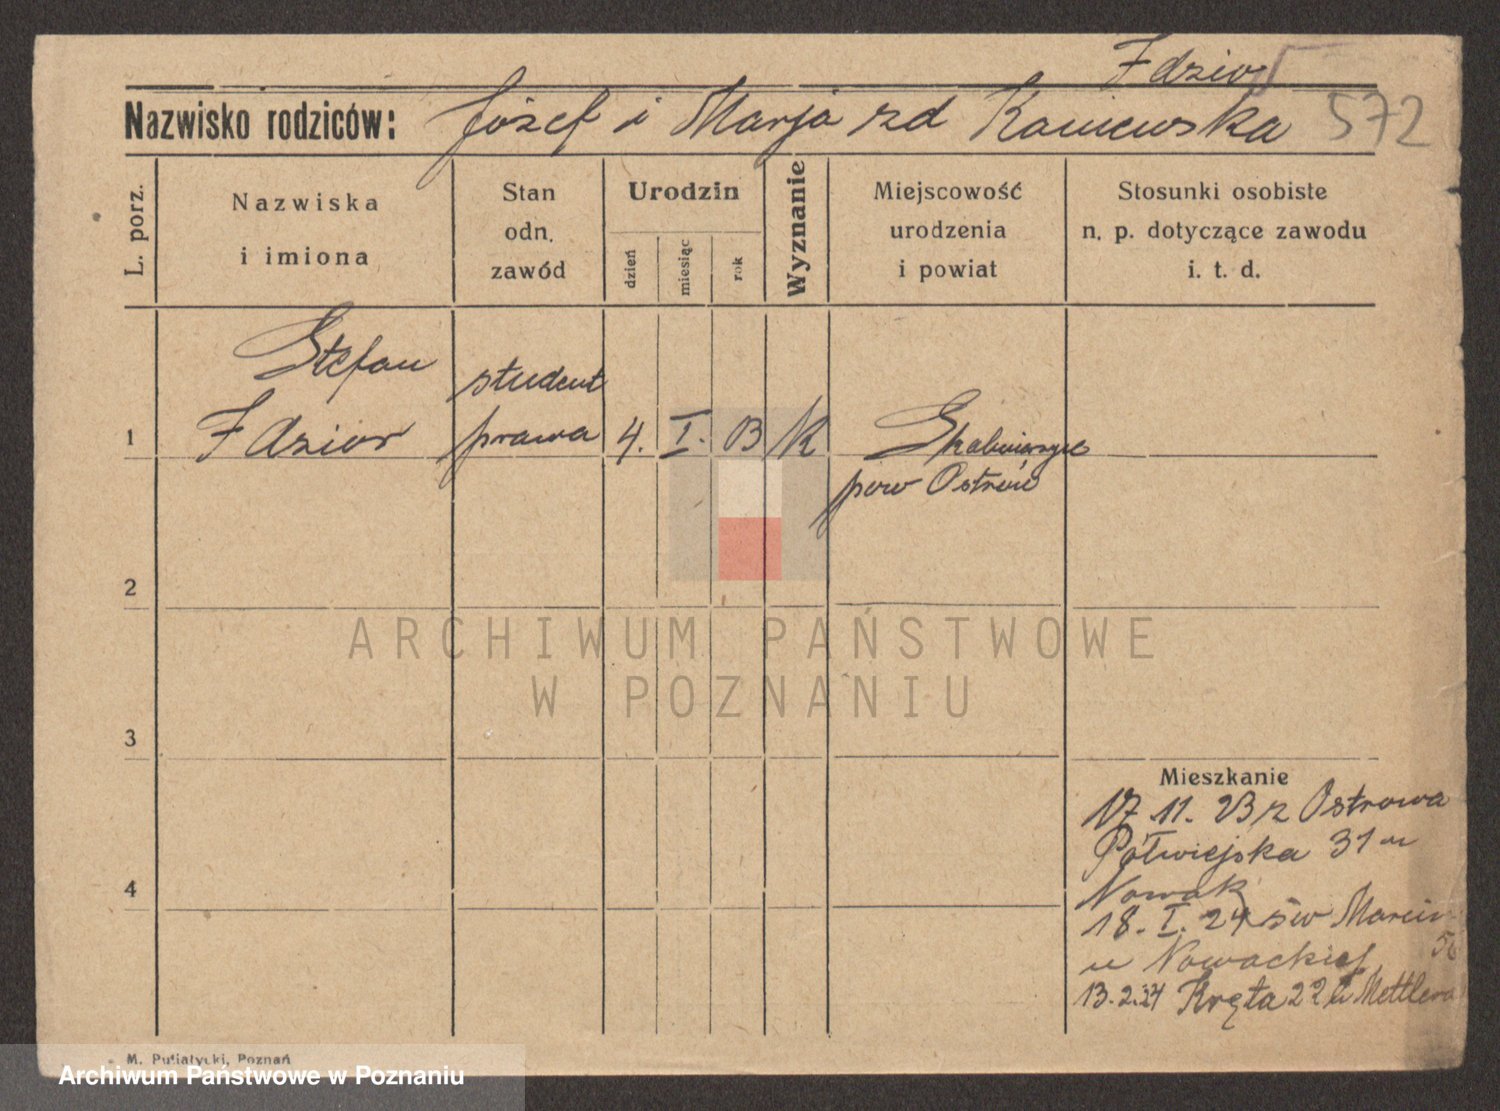 Zdzior
572
Nazwisko rodziców: Józef i Marja zd Kaniewska
L. porz.
Nazwiska
i imiona
Stan
odn.
zawód
Urodzin
dzień
miesiąc
rok
Wyznanie
Miejscowość
urodzenia
i powiat
Stosunki osobiste
n. p. dotyczące zawodu
i. t. d.
1
Stefan
Zdzior
student
prawa
4.
I.
03
K
pow Ostrów
2
ARCHIWUM PAŃSTWOWE
W POZNANIU
3
4
Mieszkanie
17.11.23 z Ostrowa
Półwiejska 31 u
Nowak
18. I. 24 św Marcin
u Nowackiej
13.2.24 Kręta 22 Mettlera
M. Putiatycki, Poznań
Archiwum Państwowe w Poznaniu